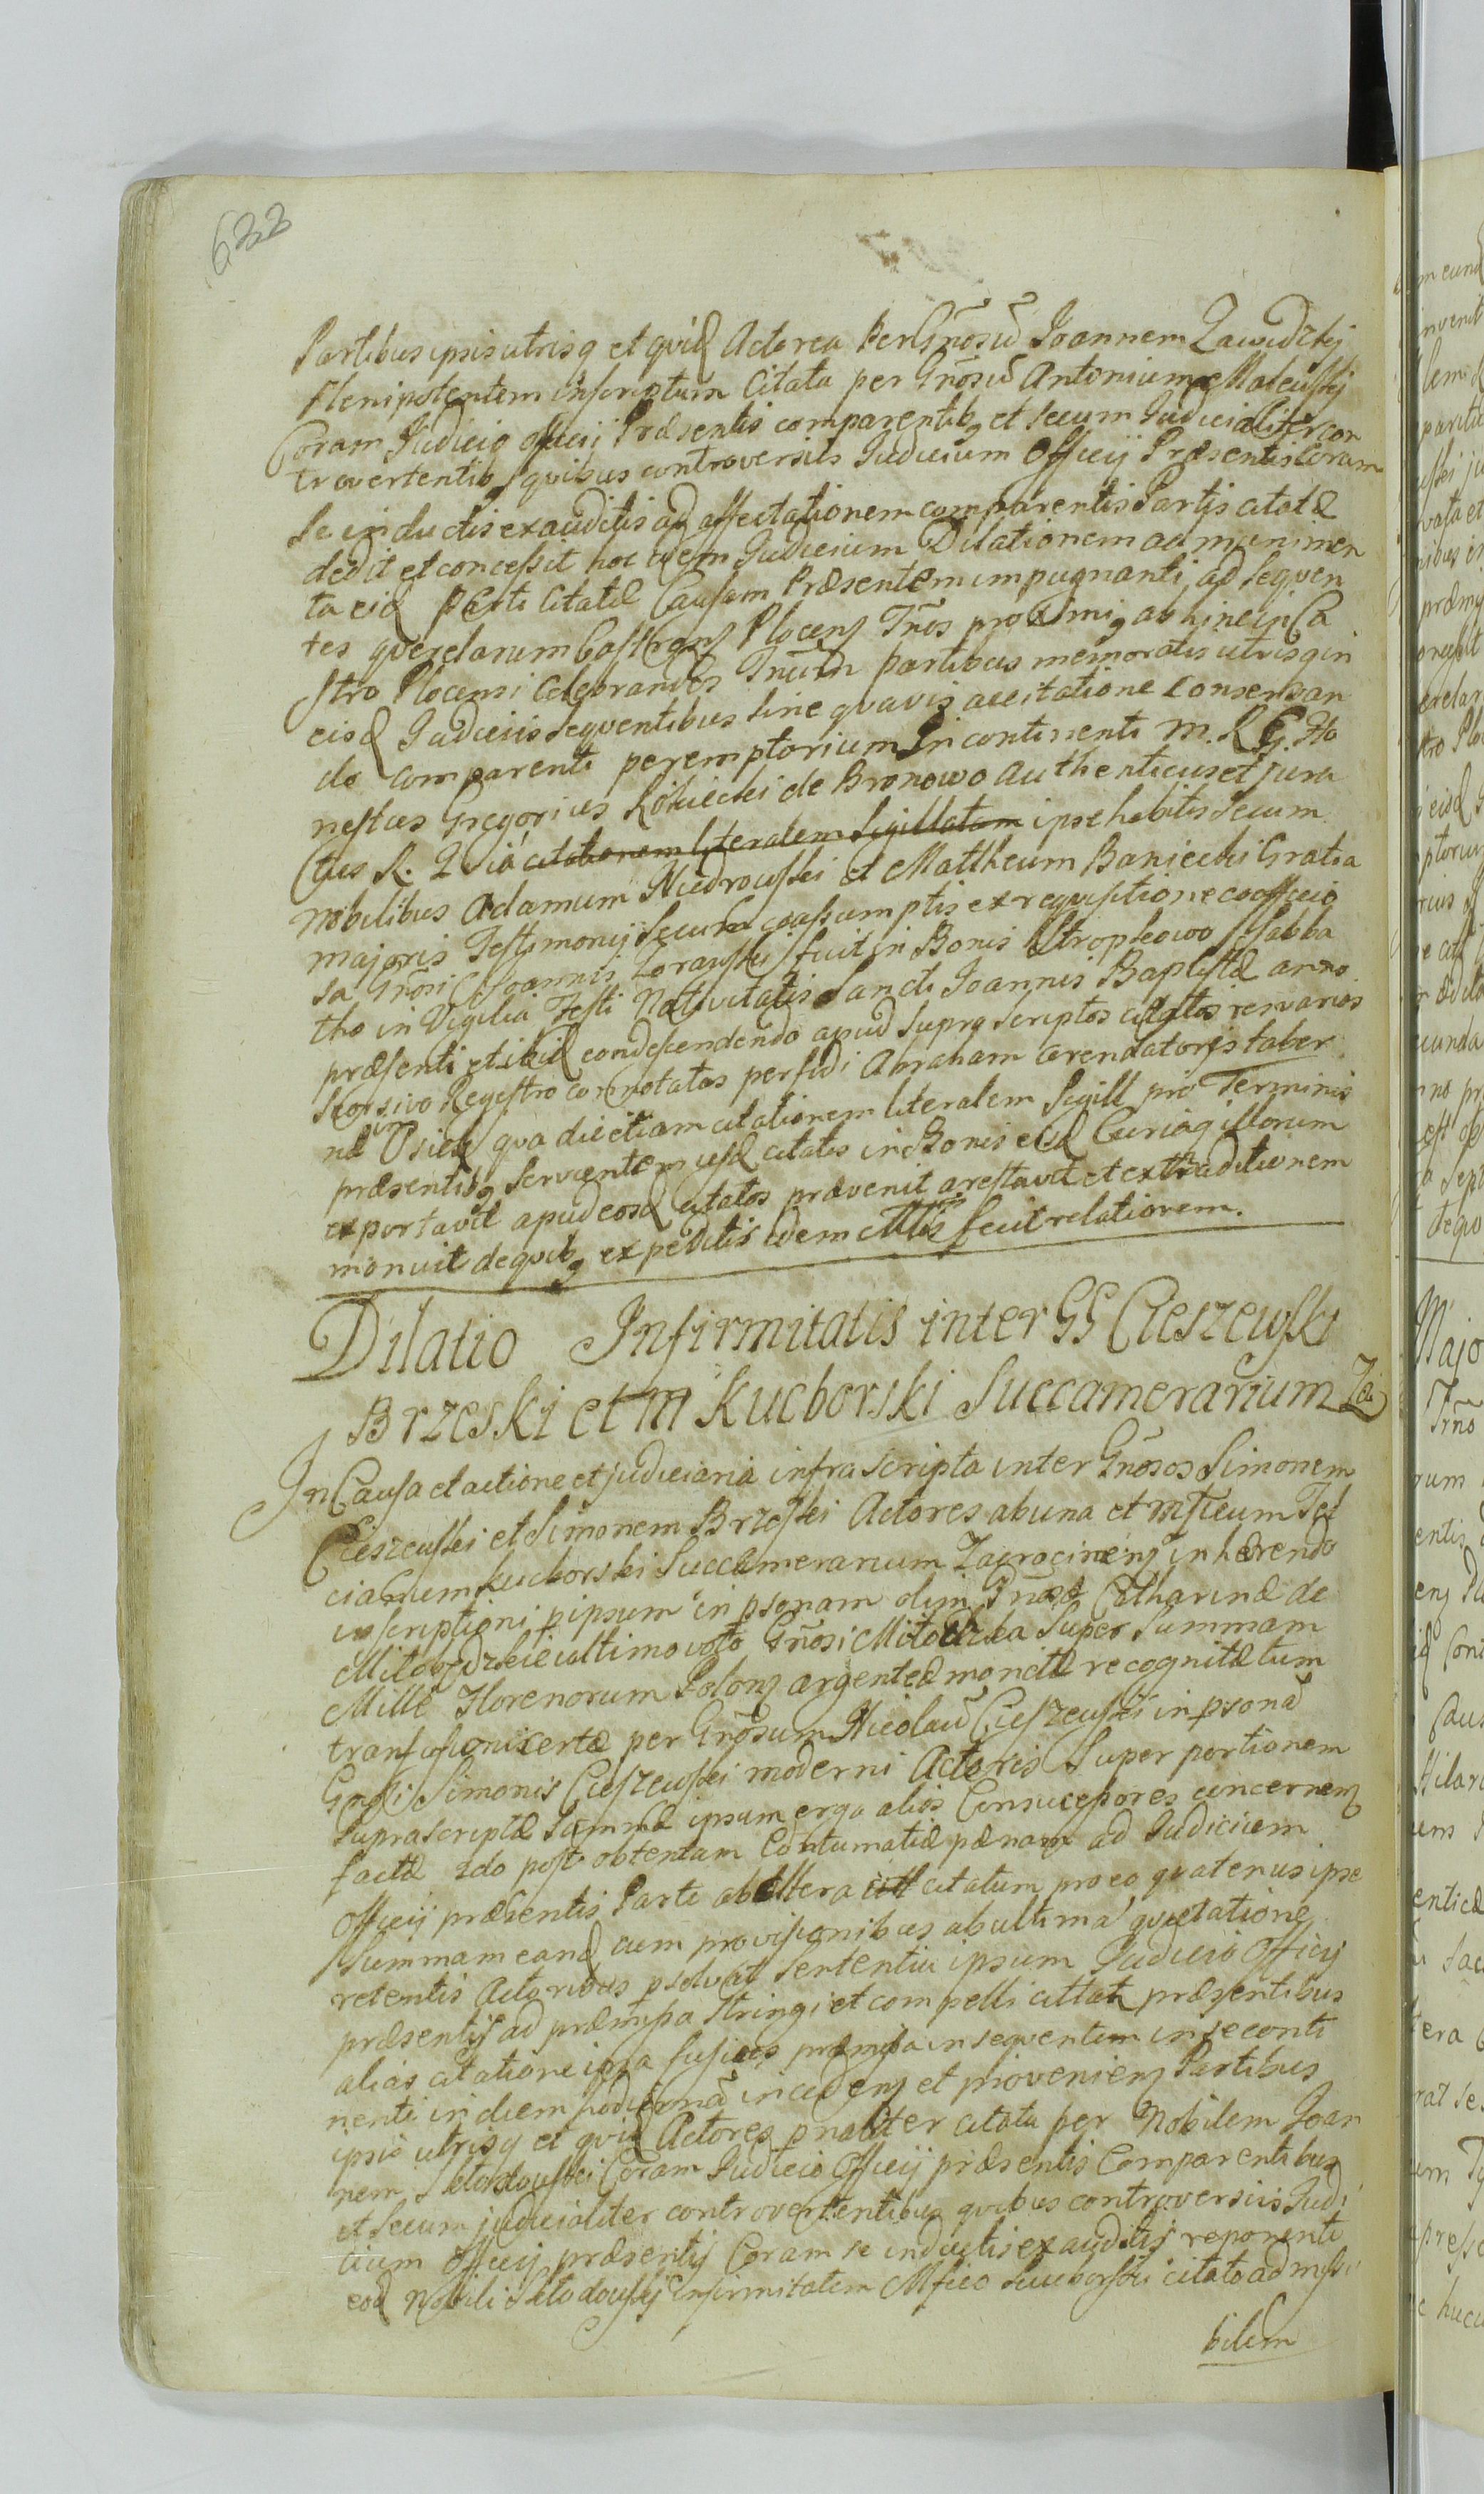 622
Partibus ipsis utrisq et quid Actorea Per Gnosu Joannem Zawidzki
Plenipotentem inscriptum Citata per Gnosu Antonium Makuski
Coram Judicio officij Præsentis comparentib, et secum Judicialiter con
trovertentib, quibus controversis Judicium Officij Præsentis Coram
se inductis exauditis ad affectationem comparentis Partis citatæ
dedit et concessit hoc idem Judicium Dilationem ad munimen
ta eid Parti Citatæ Causam Præsentem impugnanti, ad sequen
tes querelarum Castrens Plocens Tnos proximi, ab hinc in Ca
stro Plocensi Celebrandos Tnum partibus memoratis utrisq in
eisd Judicijs sequentibus sine quavis accitatione Conservan
do comparenti peremptorium In continenti M. R. G. Ho
nestus Gregorius de Bronowo Authenticus et jura
tus R. citationem literalem sigillatam ipse habitis secum
Nobilibus Adamum Niedrouski et Mattheum Baniecki Gratia
majoris Testimonij secum coassumptis ex requisitione coofficio
sa Gnosi Joannis Zorawski fuit in Bonis Stropkowo Sabba
tho in Vigilia Festi Nativitatis Sancti Joannis Baptistæ anno
præsenti et ibid condescendendo apud supra scriptos citatos
seorsivo Regestro connotatos perfidi Abraham arendatoris taber
næ qua die etiam citationem literalem Sigill pro Terminis
præsentib, servientem citatis in Bonis eisd Curiaq illorum
exportavit apud eosd citatos prævenit arestavit et extraditionem
monuit de quib, expeditis idem Mlis fecit relationem.
Dilatio Infirmitatis inter GG Cieszewski
Brzeski et M Kucborski Succamerarium Za
In Causa et actione et judiciaria infrascripta inter Gnosos Simonem
Cieszeuski et Simonem Brzeski Actores ab una et Mficum Fel
cianum Kucborski Succamerarium Zacrocinens inhærendo
inscriptioni p ipsum in psonam olim Gnosæ Catharinæ de
ultimo voto Gnosi super Summam
Mille Florenorum Polon argenteæ monetæ recognitæ tum
transfusioni certæ per Gnosum Nicolau Cieszeuski in psonã
Gnosi Simonis Cieszeuski moderni Actoris super portionem
suprascriptæ summæ ipsum erga alios Consuccessores concernen
factæ ido post obtentam Contumatiæ pænam ad Judicium
Officij præsentis Parte ab altera citatum pro eo quatenus ipse
Summam eand cum provisionibus ab ultima quietatione
retentis Actoribus psolvat sententia ipsum Judicio Officij
præsentis ad præmissa stringi et compelli cittat præsentibus
alias citatione ipsa fusius præmissa in sequentem in se conti
nenti in diem hodiernã inciden et provenien Partibus
ipsis utrisq et quid Actores pnaliter citata per Nobilem Joan
nem Coram Judicio Officij præsentis Comparentibus
et secum judicialiter controvertentibus quibus controversiis Judi
cium Officij præsentis Coram se inductis exauditis reponenti
eod Nobili infirmitatem Mfico Kucborski citato admissi
bilem